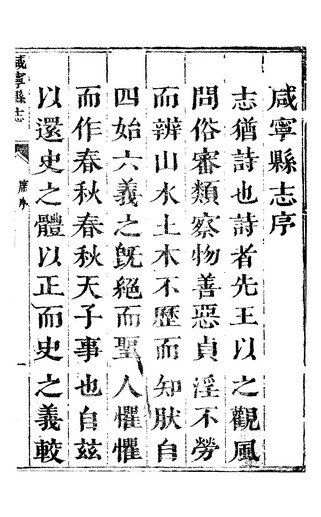 咸寧縣志序
志猶詩也詩者先王以之觀風
問俗審類察物善惡貞淫不勞
而辨山水土木不歷而知肰自
四始六義之旣絕而聖人懼懼
而作春秋春秋天子事也自茲
以還史之體以正而史之義較
咸寧縣志
序
一